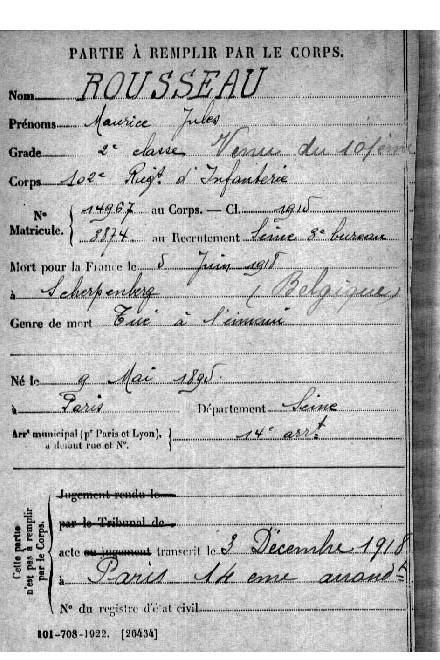 PARTIE À REMPLIR PAR LE CORPS.
Nom ROUSSEAU
Prénoms Maurice Jules
Grade 2e classe Venu du 101ème
Corps 102e Régt d'Infanterie
No Matricule. { 14967 au Corps. — Cl. 1915
8874 au Recrutement Seine 3e bureau
Mort pour la France le 5 Juin 1918
à Scherpenberg (Belgique)
Genre de mort Tué à l'ennemi
Né le 9 Mai 1895
à Paris Département Seine
Arrt municipal (pr Paris et Lyon), à défaut rue et No. } 14e arrt
Cette partie n'est pas à remplir par le Corps.
Jugement rendu le
par le Tribunal de
acte ou jugement transcrit le 3 Décembre 1918
à Paris 14eme arrondt
No du registre d'état civil
101-708-1922. [26434]